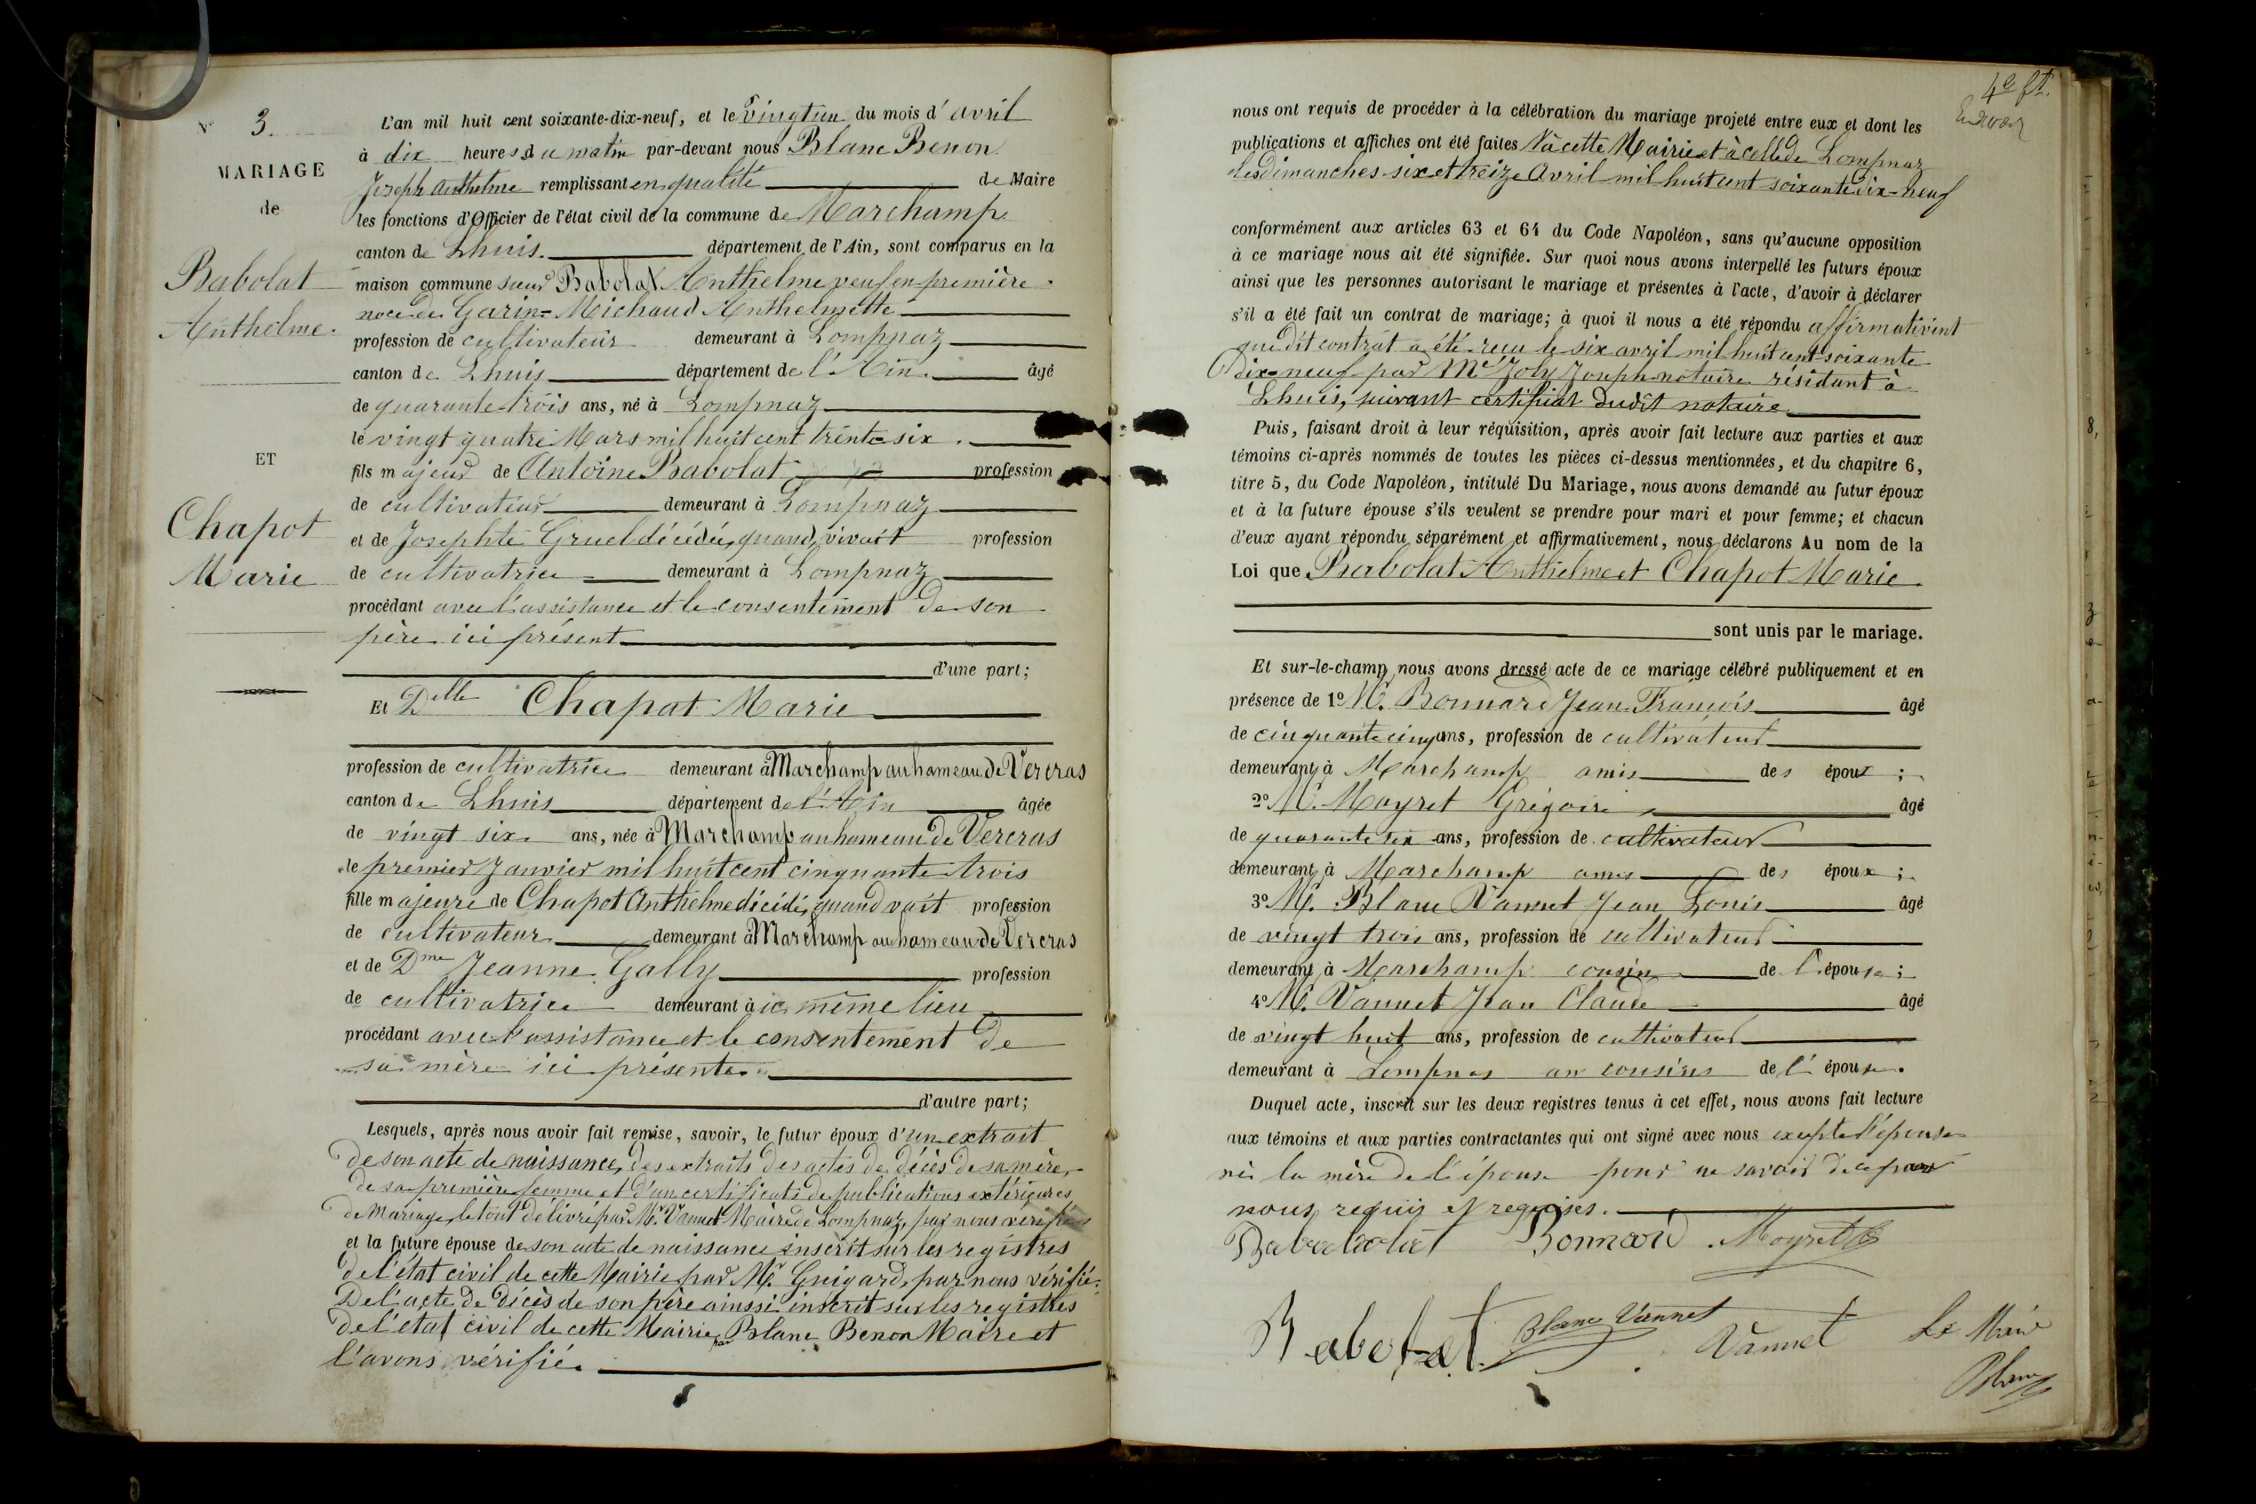 N° 3.
MARIAGE
de
Babolat
Anthelme.
ET
Chapot
Marie
L'an mil huit cent soixante-dix-neuf, et le vingt un du mois d'avril
à dix heures du matin par-devant nous Blanc Benon
Joseph Anthelme remplissant en qualité de Maire
les fonctions d'Officier de l'état civil de la commune de Marchamp
canton de Lhuis. département de l'Ain, sont comparus en la
maison commune sieur Babolat Anthelme veuf en première
noce de Garin-Michaud Anthelmette
profession de cultivateur demeurant à Lompnaz
canton de Lhuis département de l'Ain. âgé
de quarante-trois ans, né à Lompnaz
le vingt quatre Mars mil huit cent trente six.
fils majeur de Antoine Babolat profession
de cultivateur demeurant à Lompnaz
et de Josephte Gruel décédée, quand vivait profession
de cultivatrice demeurant à Lompnaz
procédant avec l'assistance et le consentement de son
père ici présent
d'une part;
Et Delle Chapot Marie
profession de cultivatrice demeurant à Marchamp au hameau de Vercras
canton de Lhuis département de l'Ain âgée
de vingt six ans, née à Marchamp au hameau de Vercras
le premier Janvier mil huit cent cinquante trois
fille majeure de Chapot Anthelme décédé, quand vait profession
de cultivateur demeurant à Marchamp au hameau de Vercras
et de Dme Jeanne Gally profession
de cultivatrice demeurant à même lieu
procédant avec l'assistance et le consentement de
sa mère ici présente.
d'autre part;
Lesquels, après nous avoir fait remise, savoir, le futur époux d'un extrait
de son acte de naissance, des extraits des actes de décès de sa mère,
de sa première femme et d'un certificats de publications extérieures
de Mariage, le tout délivré par Mr. Vannet Maire de Lompnaz, par nous vérifiés
et la future épouse de son acte de naissance inscrit sur les registres
de l'état civil de cette Mairie par Mr. Guigard, par nous vérifié.
De l'acte de décès de son père ainssi inscrit sur les registres
de l'état civil de cette Mairie par Blanc Benon Maire et
l'avons vérifié.
4e ft.
nous ont requis de procéder à la célébration du mariage projeté entre eux et dont les
publications et affiches ont été faites à cette Mairie et à celle de Lompnaz
les dimanches six et treize Avril mil huit cent soixante dix-neuf
conformément aux articles 63 et 64 du Code Napoléon, sans qu'aucune opposition
à ce mariage nous ait été signifiée. Sur quoi nous avons interpellé les futurs époux
ainsi que les personnes autorisant le mariage et présentes à l'acte, d'avoir à déclarer
s'il a été fait un contrat de mariage; à quoi il nous a été répondu affirmativint
que dit contrat a été reçu le six avril mil huit cent soixante
dix-neuf par Me Joly Joseph notaire résidant à
Lhuis, suivant certificat dudit notaire
Puis, faisant droit à leur réquisition, après avoir fait lecture aux parties et aux
témoins ci-après nommés de toutes les pièces ci-dessus mentionnées, et du chapitre 6,
titre 5, du Code Napoléon, intitulé Du Mariage, nous avons demandé au futur époux
et à la future épouse s'ils veulent se prendre pour mari et pour femme; et chacun
d'eux ayant répondu séparément et affirmativement, nous déclarons Au nom de la
Loi que Babolat Anthelme et Chapot Marie
sont unis par le mariage.
Et sur-le-champ nous avons dressé acte de ce mariage célébré publiquement et en
présence de 1° M. Bonnard Jean François âgé
de cinquante cinq ans, profession de cultivateur
demeurant à Marchamp amis des époux;
2° M. Mayret Grégoire âgé
de quarante six ans, profession de cultivateur
demeurant à Marchamp amis des époux;
3° M. Blanc Vannet Jean Louis âgé
de vingt trois ans, profession de cultivateur
demeurant à Marchamp cousin de l'épouse;
4° M. Vannet Jean Claude âgé
de vingt huit ans, profession de cultivateur
demeurant à Lompnas cousins de l'épouse.
Duquel acte, inscrit sur les deux registres tenus à cet effet, nous avons fait lecture
aux témoins et aux parties contractantes qui ont signé avec nous excepté l'épouse
ni la mère de l'épouse pour ne savoir de ce par
nous requis et requises.
Babolat Bonnard Mayret
Babolat Blanc Vannet Vannet Le Maire
Blanc